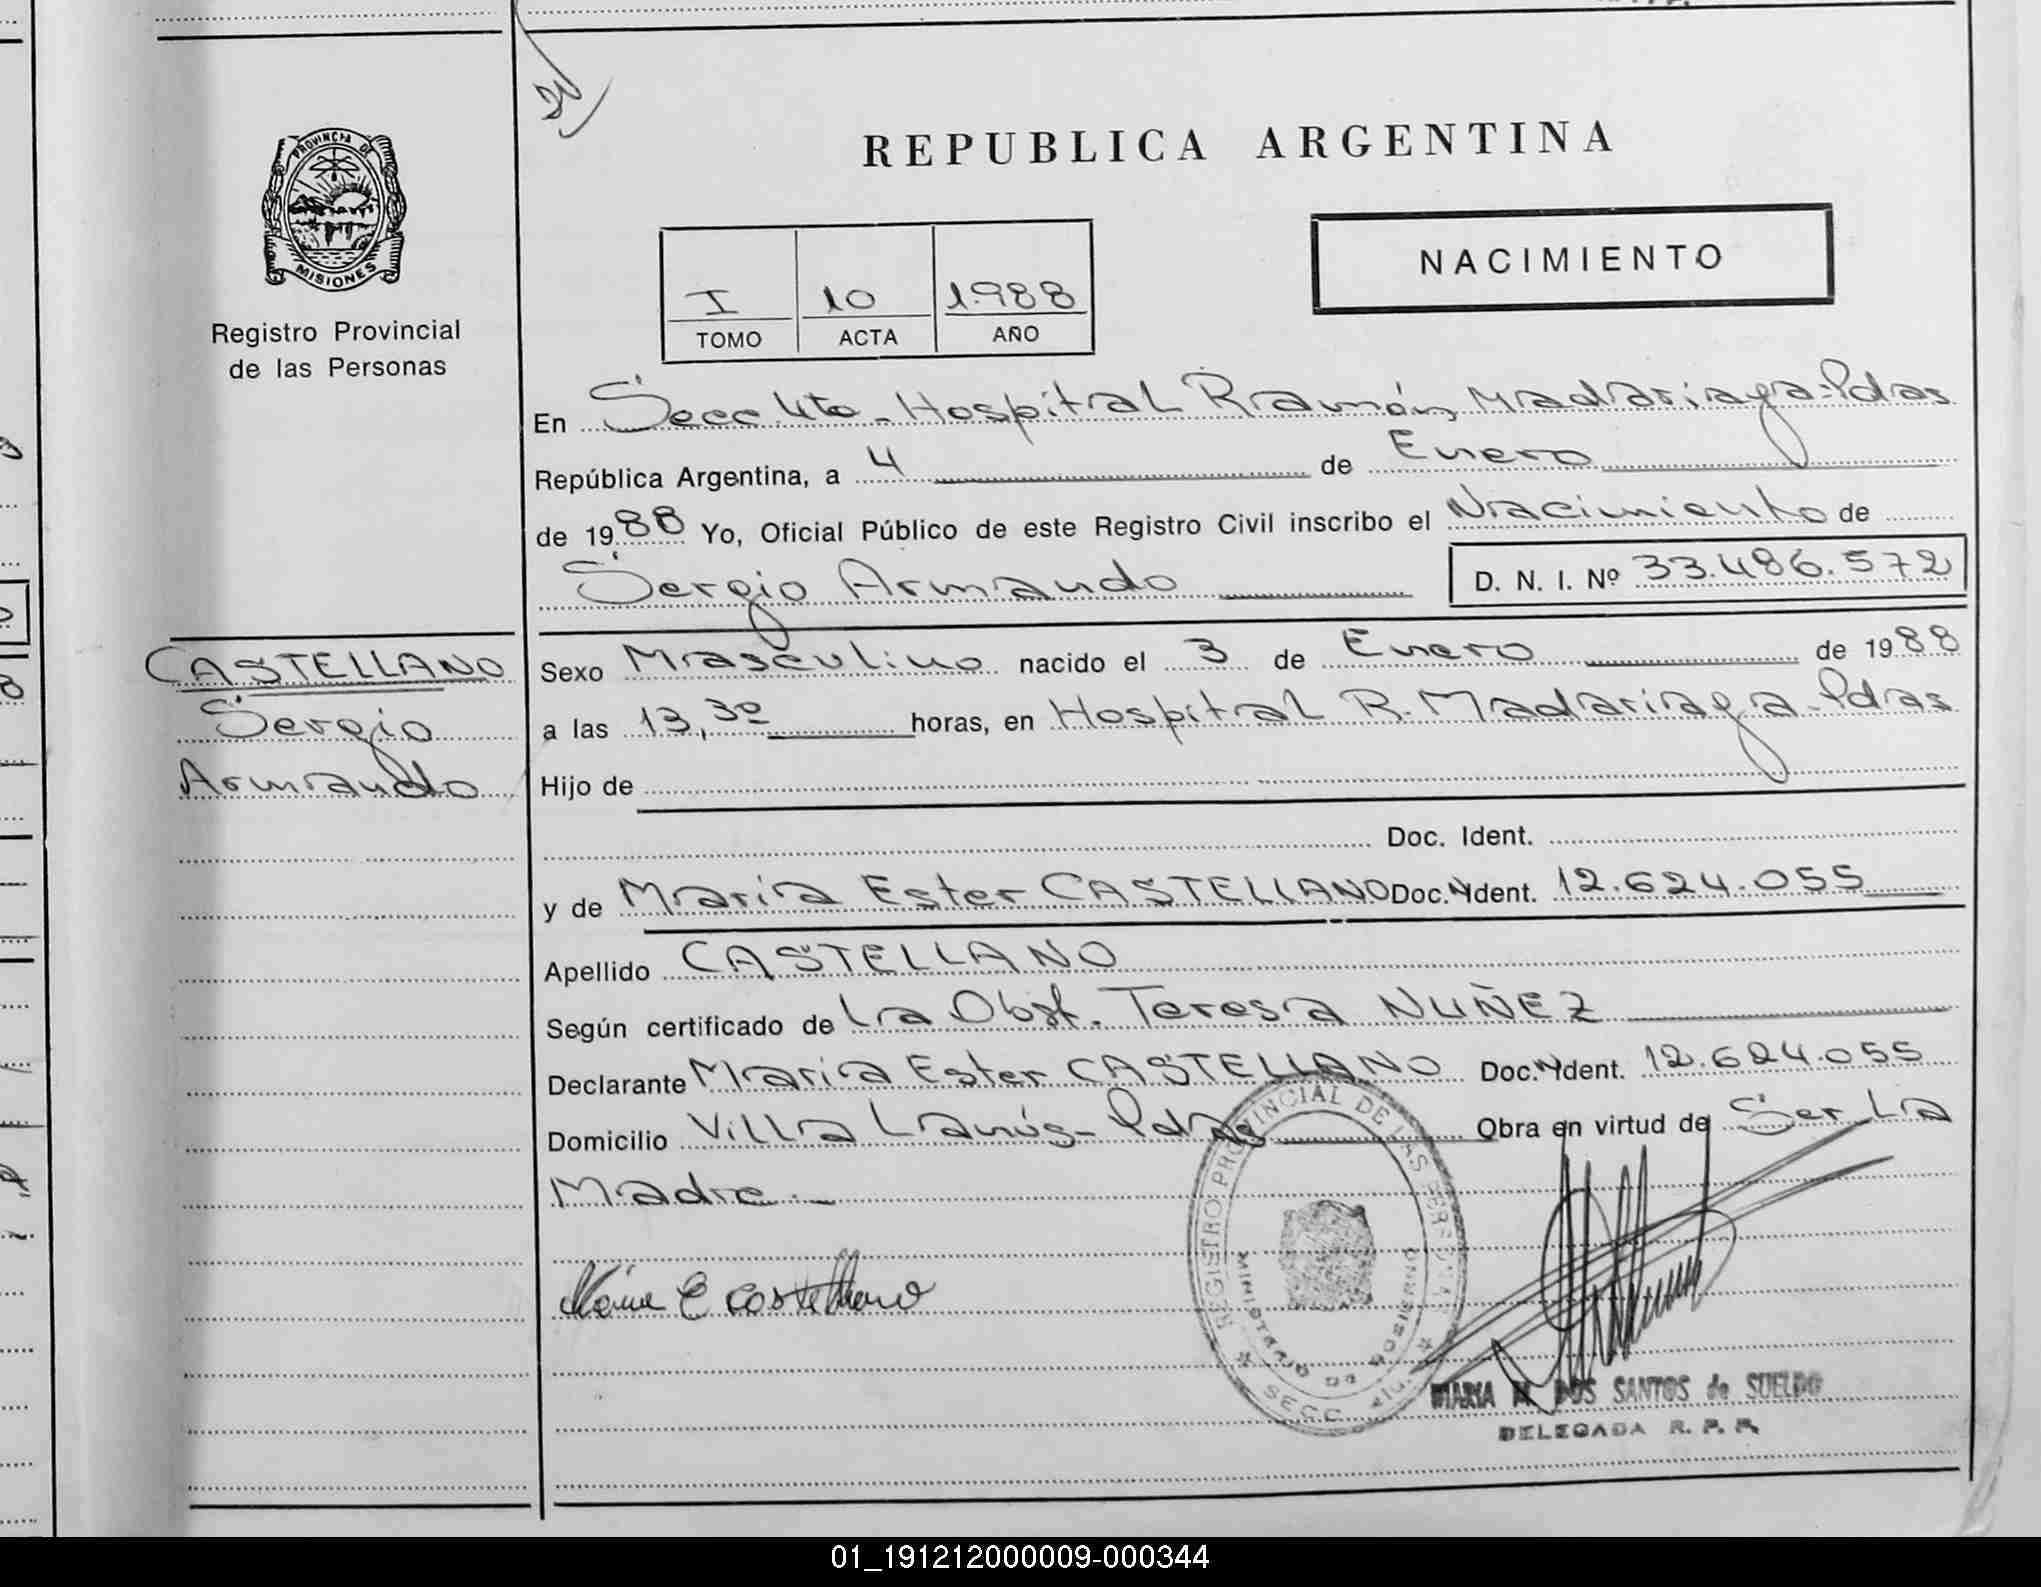 PROVINCIA DE
MISIONES
Registro Provincial
de las Personas
CASTELLANO
Sergio
Armando
REPUBLICA ARGENTINA
NACIMIENTO
I 10 1988
TOMO ACTA AÑO
En Secc 4ta - Hospital Ramón Madariaga - Pdas
República Argentina, a 4 de Enero
de 1988 Yo, Oficial Público de este Registro Civil inscribo el Nacimiento de
Sergio Armando D. N. I. Nº 33.486.572
Sexo Masculino nacido el 3 de Enero de 1988
a las 13,30 horas, en Hospital R. Madariaga - Pdas
Hijo de
Doc. Ident.
y de María Ester CASTELLANO Doc. Ident. 12.624.055
Apellido CASTELLANO
Según certificado de La Obst. Teresa NUÑEZ
Declarante María Ester CASTELLANO Doc. Ident. 12.624.055
Domicilio Villa Lanús - Pdas Obra en virtud de Ser La
Madre.-
María E Castellano
REGISTRO PROVINCIAL DE LAS PERSONAS
MINISTERIO DE GOBIERNO
SECC. 4ta.
MARIA M. DOS SANTOS de SUELDO
DELEGADA R. P. P.
01_191212000009-000344